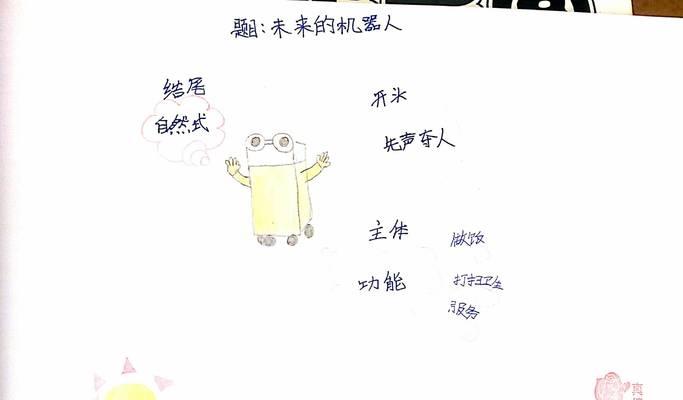 题目:未来的机器人
结尾
自然式
开头
先声夺人
主体
做饭
功能
打扫卫生
服务